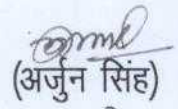 (अर्जुन सिंह)